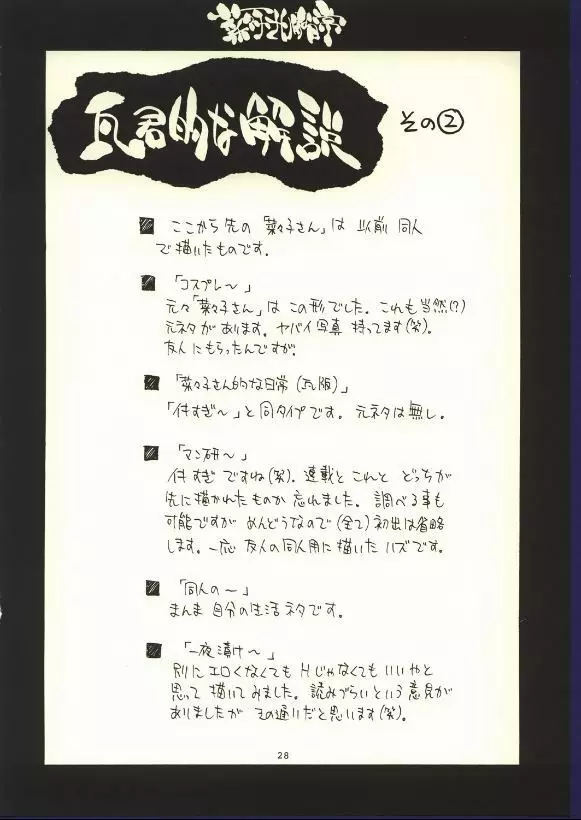 瓦君的な解説 その②
■ ここから先の「菜々子さん」は 以前 同人
で描いたものです。
■ 「コスプレ〜」
元々「菜々子さん」は この形でした。これも当然(?)
元ネタがあります。ヤバイ写真 持ってます(笑)。
友人にもらったんですが。
■ 「菜々子さん的な日常(瓦版)」
「件すぎ〜」と同タイプです。元ネタは無し。
■ 「マン研〜」
件すぎ ですね(笑)。連載と これと どっちが
先に描かれたものか 忘れました。調べる事も
可能ですが めんどうなので(全て)初出は省略
します。一応 友人の同人用に描いた ハズです。
■ 「同人の〜」
まんま 自分の生活ネタです。
■ 「一夜漬け〜」
別に エロくなくても Hじゃなくても いいやと
思って 描いてみました。読みづらいという意見が
ありましたが その通りだと思います(笑)。
28